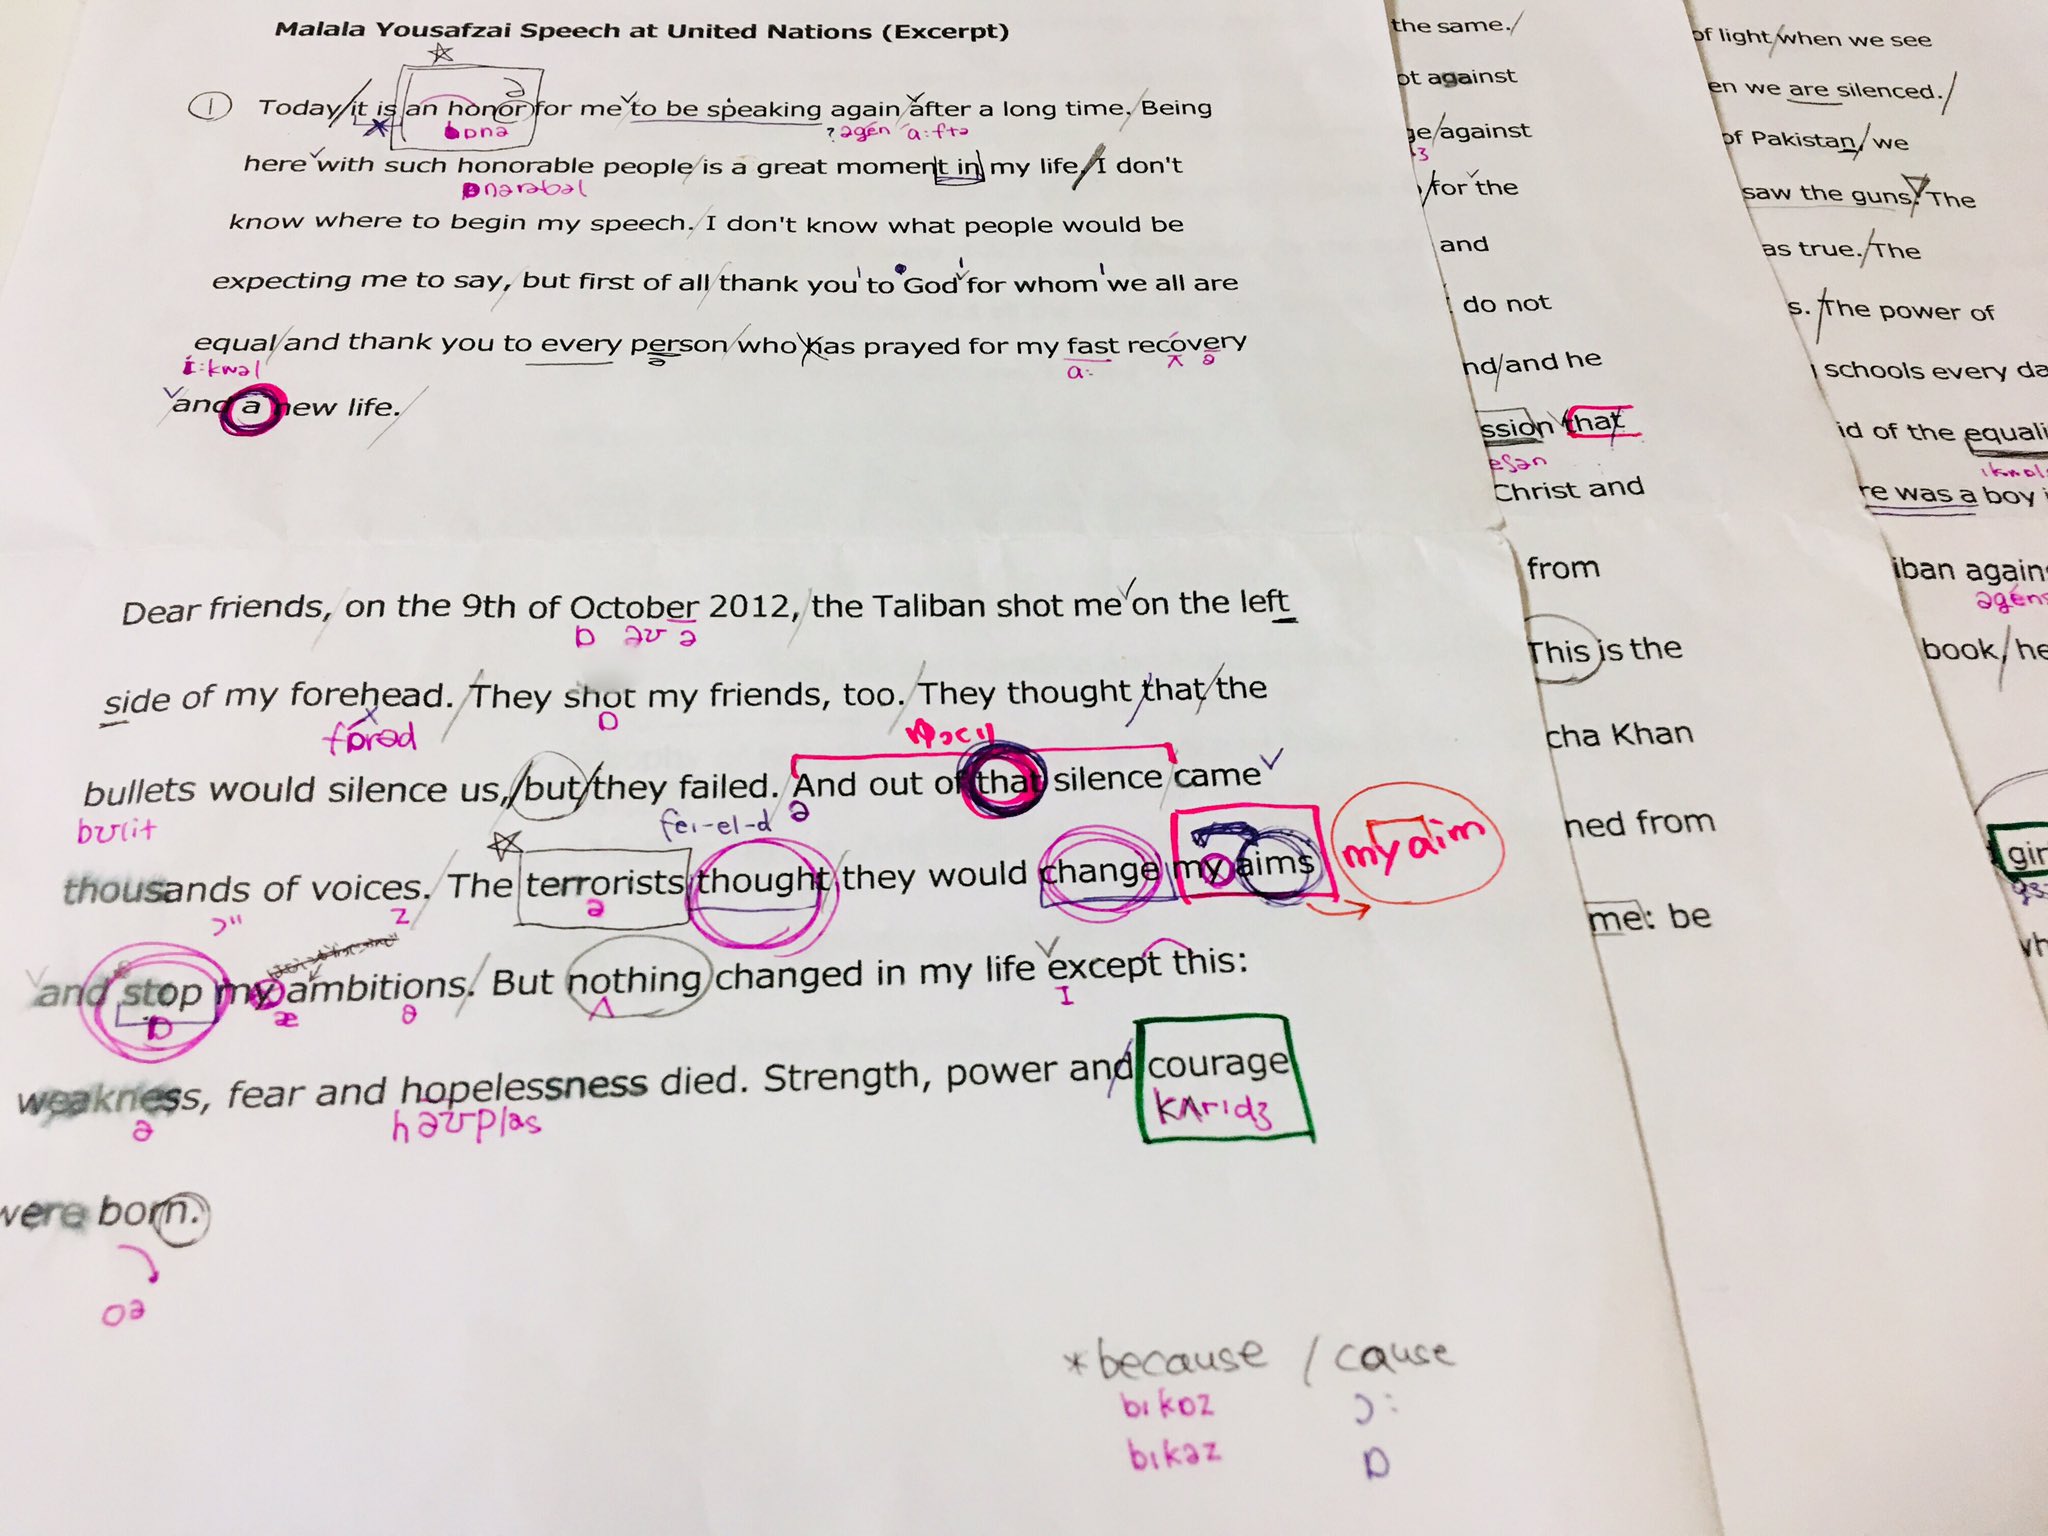 Malala Yousafzai Speech at United Nations (Excerpt)
1 Today it is an honor for me to be speaking again after a long time. Being
ə
ɒnə ? əgén ɑ:ftə
here with such honorable people is a great moment in my life. I don't
ɒnərəbəl
know where to begin my speech. I don't know what people would be
expecting me to say, but first of all thank you to God for whom we all are
equal and thank you to every person who has prayed for my fast recovery
i:kwəl ə a: ʌ ə
and a new life.
Dear friends, on the 9th of October 2012, the Taliban shot me on the left
ɒ əʊ ə
side of my forehead. They shot my friends, too. They thought that the
fɒrəd ɒ
bullets would silence us, but they failed. And out of that silence came
bʊlit fei-el-d ə
thousands of voices. The terrorists thought they would change my aims my aim
z ə
and stop my ambitions. But nothing changed in my life except this:
ɒ æ ə ʌ ɪ
weakness, fear and hopelessness died. Strength, power and courage
ə həʊpləs kʌrɪdʒ
were born.
oə
*because / cause
bɪkɒz ɔ:
bɪkəz ɒ
the same.
ot against
ge against
for the
and
do not
nd and he
ssion that
eʃən
Christ and
from
This is the
cha Khan
ned from
me: be
of light when we see
en we are silenced.
of Pakistan, we
saw the guns. The
as true. The
s. The power of
schools every da
id of the equali
re was a boy i
iban agains
book, he
gir
wh